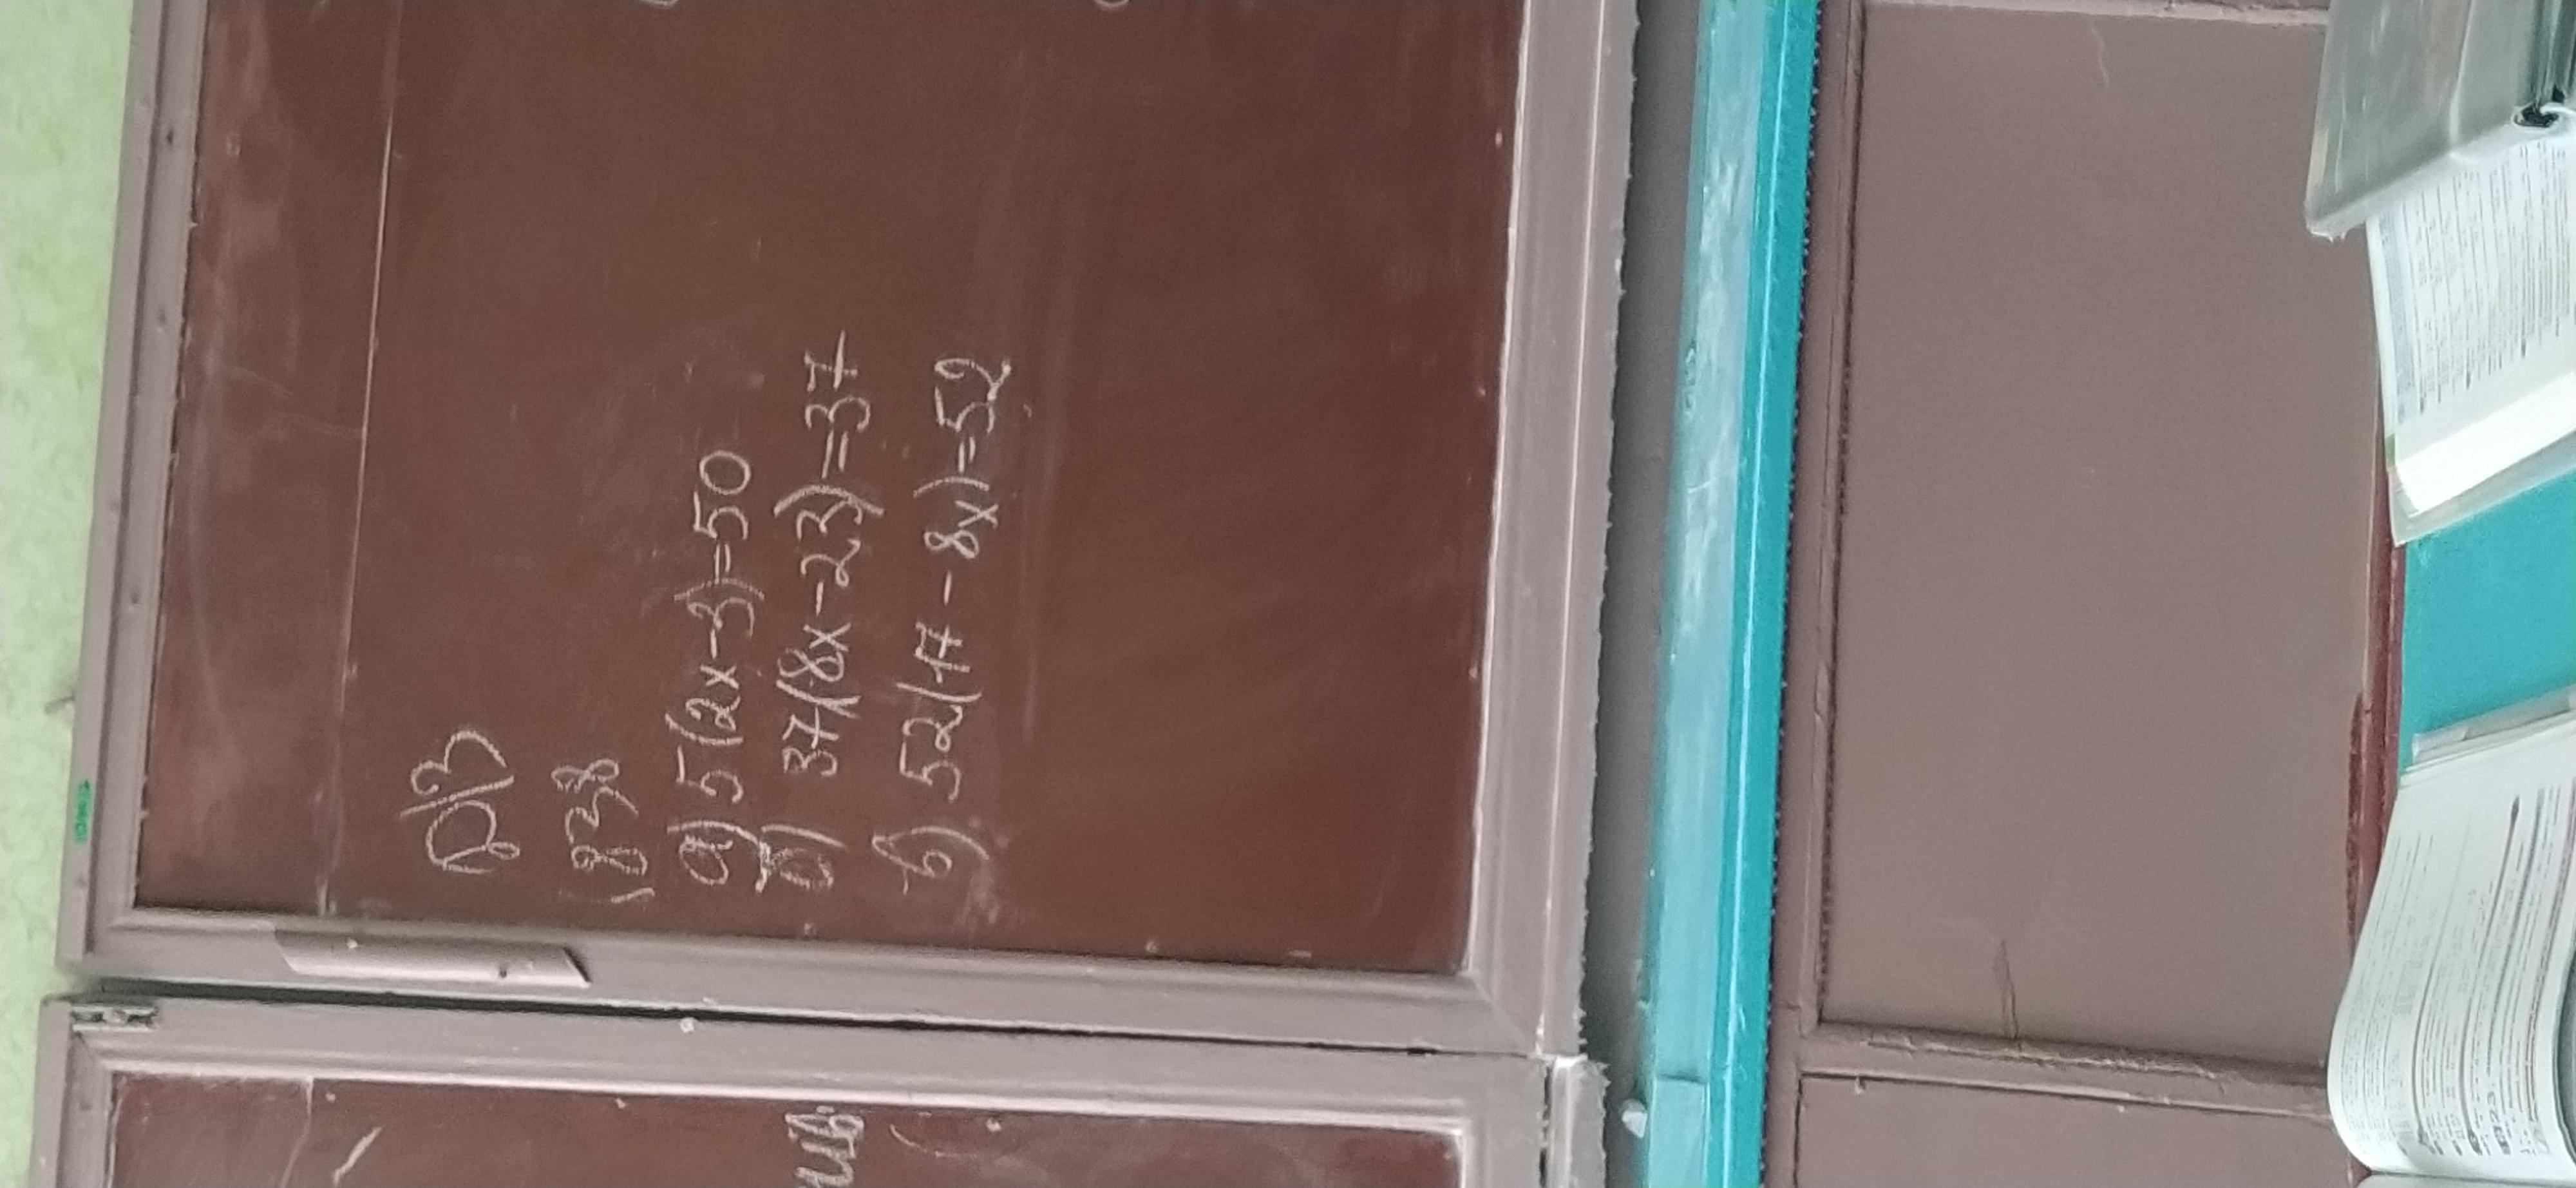 Д/З
(838
а) 5(2x-3)=50
б) 37(8x-23)=37
в) 52(17-8x)=52